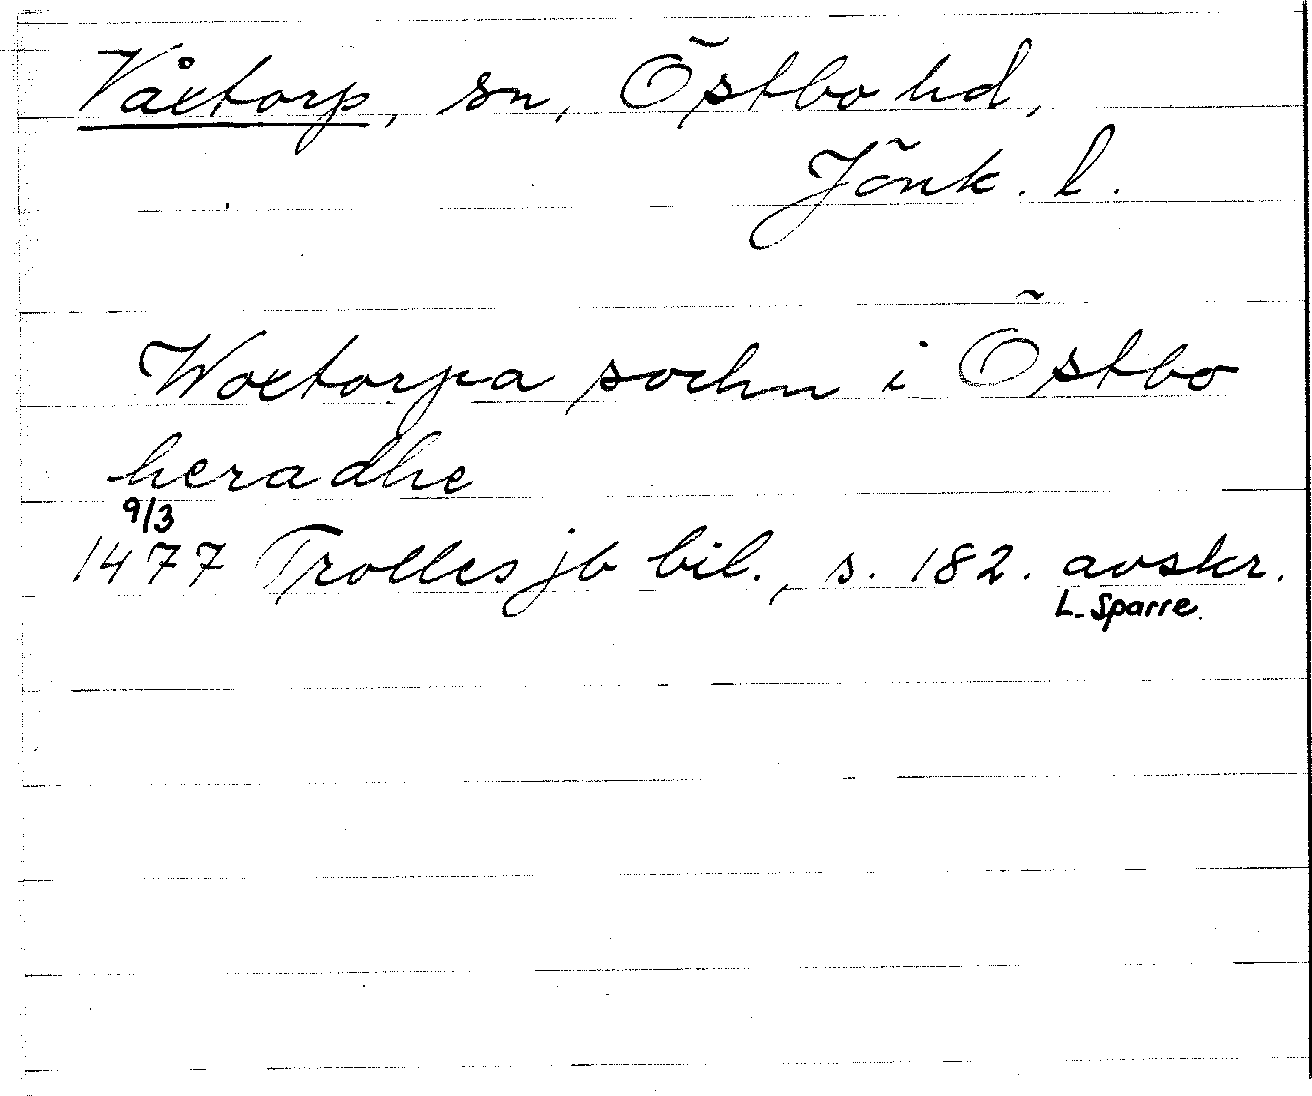 Våxtorp, sn, Östbo hd,
Jönk. l.
Woxtorpa sochn i Östbo
heradhe
9/3
1477 Trolles jb bil., s. 182. avskr.
L. Sparre.